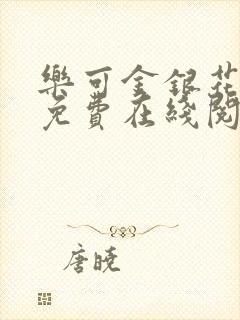 樂可金銀花
免費在綫閱
唐曉